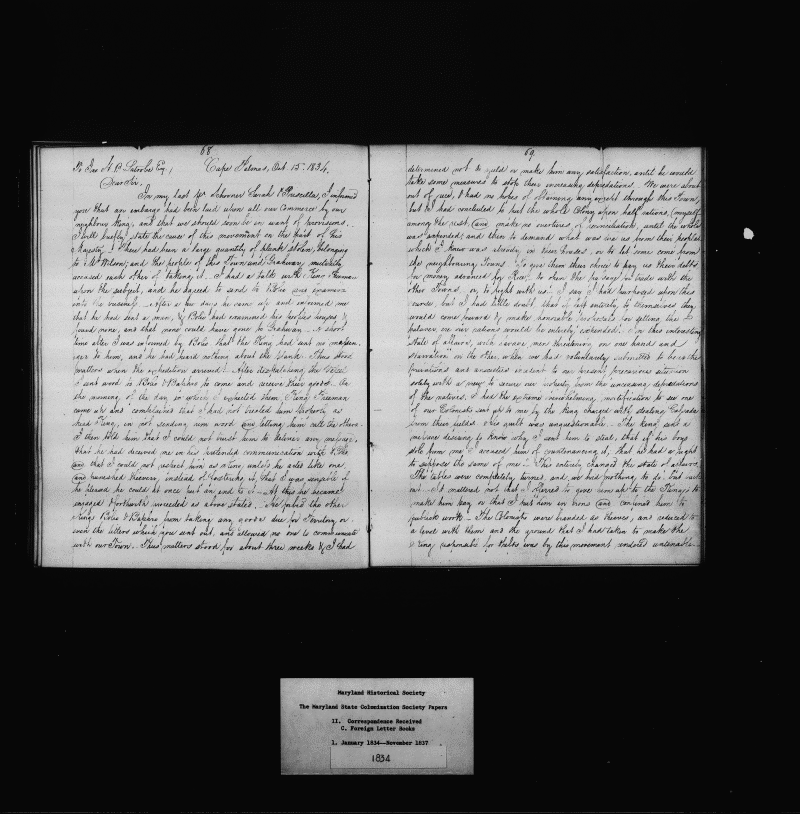 68
To Jno. H. B. Latrobe Esq., Cape Palmas, Oct. 15th 1834.
Dear Sir,
In my last per Schooner Sarah & Priscilla, I informed
you that an embargo had been laid upon all our commerce by our
neighbour King, and that we should soon be in want of provisions.
I will briefly state the cause of this movement on the part of his
Majesty. There had been a large quantity of plank stolen, belonging
to Mr Wilson, and the peoples of this Town and Grahway mutually
accused each other of taking it. I had a talk with King Freeman
upon the subject, and he agreed to send to Bolio and examine
into the business. After a few days he came up and informed me
that he had sent a man, & Bolio had examined his peoples houses &
found none, and that none could have gone to Grahway. A short
time after I was informed by Bolio that the King had sent no messen-
ger to him, and he had heard nothing about the plank. Thus stood
matters when the expedition arrived. After despatching the vessel
I sent word to Bolio & Baphro to come and receive their goods. On
the morning of the day on which I expected them, King Freeman
came up and complained that I had not treated him properly as
head King, in not sending him word and letting him call the others.
I then told him that I could not trust him to deliver any message,
that he had deceived me in his pretended communication with Bolio
and that I could not respect him as a King, unless he acted like one
and punished thievery, instead of
he pleased he could at once put an end to it. At this he became
enraged & forthwith proceeded as above stated. He forbid the other
Kings Bolio & Baphro from taking any goods due for Territory or
even the letters which you sent out, and allowed no one to communicate
with our Town. Thus matters stood for about three weeks & I had
69
determined not to yield or make him any satisfaction, until he would
take some measures to stop their increasing depredations. We were about
out of rice, & had no hopes of obtaining any except through this Town,
but I had concluded to put the whole Colony upon half rations, (myself
among the rest,) and make no overtures of conciliation, until the whole
was expended; and then to demand what was due us from their peoples
which I knew was already in their houses, or to let some come from
the neighbouring Towns. To give them their choice to pay us their debts
for money advanced for Rice, to open the passage for trade with the
other Towns, or, to fight with us. I say I had purposed upon this
course, but I had little doubt that if left entirely to themselves they
would come forward & make honorable proposals for settling the
palaver, ere our rations would be entirely expended. In this interesting
state of affairs, with savage, mere threatening, on one hand and
starvation on the other, when we had voluntarily submitted to bear the
privations and anxieties incident to our present precarious situation
solely with a view to secure our industry from the unceasing depredations
of the natives, I had the extreme overwhelming mortification to see one
of our Colonists sent up to me by the King charged with stealing Cassada
from their fields. His guilt was unquestionable. The King sent a
message desiring to know why I sent him to steal, that if his boys
stole from me, I accused him of countenancing it, that he had a right
to suppose the same of me. This entirely changed the state of affairs.
The tables were completely turned, and we had nothing to do but
out. It mattered not that I offered to give him up to the Kings to
make him pay or that I put him in irons and confined him to
publick work. The Colonists were branded as thieves, and reduced to
a level with them and the ground that I had taken to make the
King responsible for thefts was by this movement rendered untenable.
Maryland Historical Society
The Maryland State Colonization Society Papers
II. Correspondence Received
C. Foreign Letter Books
1. January 1834--November 1837
1834